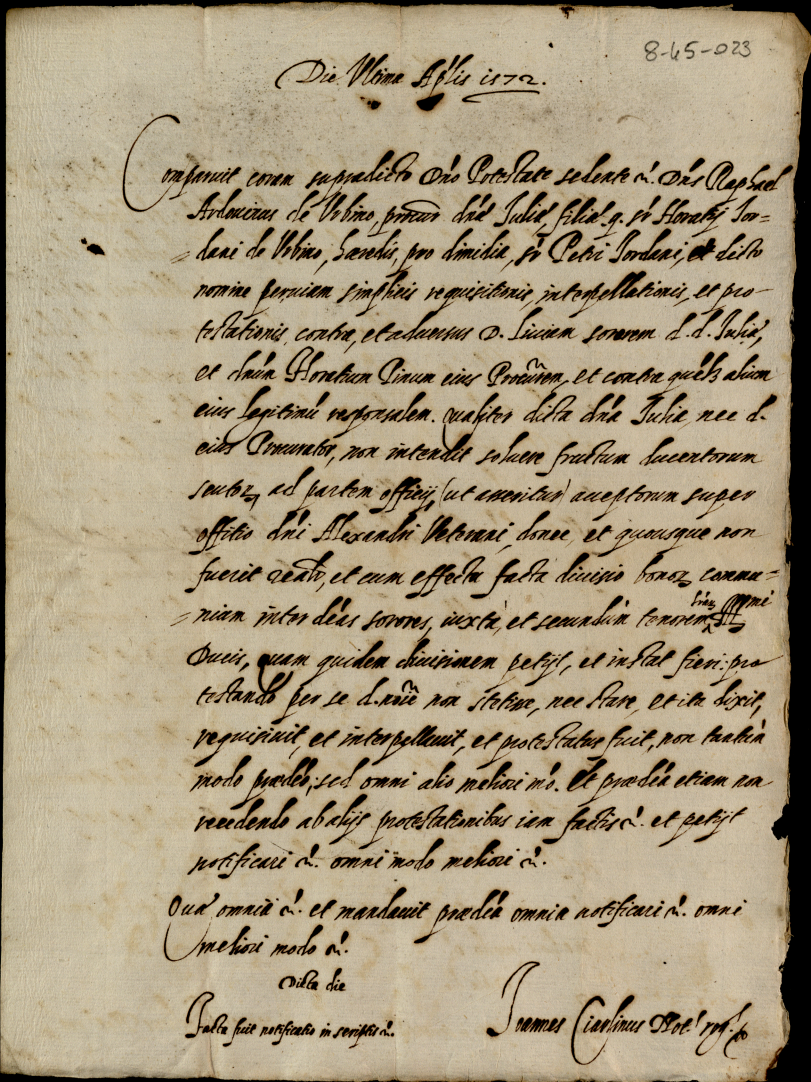 8-45-023
Die Ultima Aplis 1572.
Comparuit coram supradicto Dno Potestate sedente &. Dns Raphael
Ardovinus de Urbino, procur dnę Iulię, filię q. sr Horatij Ior=
=dani de Urbino, hæredis, pro dimidia, sr Petri Iordani, et dicto
nomine per viam simplicis requisitionis, interpellationis, et pro-
testationis, contra, et adversus D. Liviam sororem d. d. Iulię,
et dnũm Horatium Pinum eius Procũrem, et contra quẽlz alium
eius legitimũ responsalem. Qualiter dicta dna Iulia, nec d.
eius Procurator, non intendit solvere fructum ducentorum
scutoꝝ, ad partem officij, (ut asseritur) acceptorum super
offitio dni Alexandri Veterani, donec, et quousque non
fuerit realr, et cum effectu facta divisio bonoꝝ commu=
=nium inter dẽas sorores, iuxta, et secundũm tenorem lrarꝝ Illmi
Ducis, quam quidem divisionem petijt, et instat fieri: pro
testando per se d. noĩe non stetisse, nec stare, et ita dixit,
requisivit, et interpellavit, et protestatus fuit, non tantũm
modo prædco, sed omni alio meliori mõ. Et prædca etiam non
recedendo ab alijs protestationibus iam factis &. et petijt
notificari &. omni modo meliori &.
Quę omnia &. et mandavit prædca omnia notificari &. omni
meliori modo &.
Dicta die
Facta fuit notificatio in scriptis &.
Ioannes Ciarlinus Not. rog.